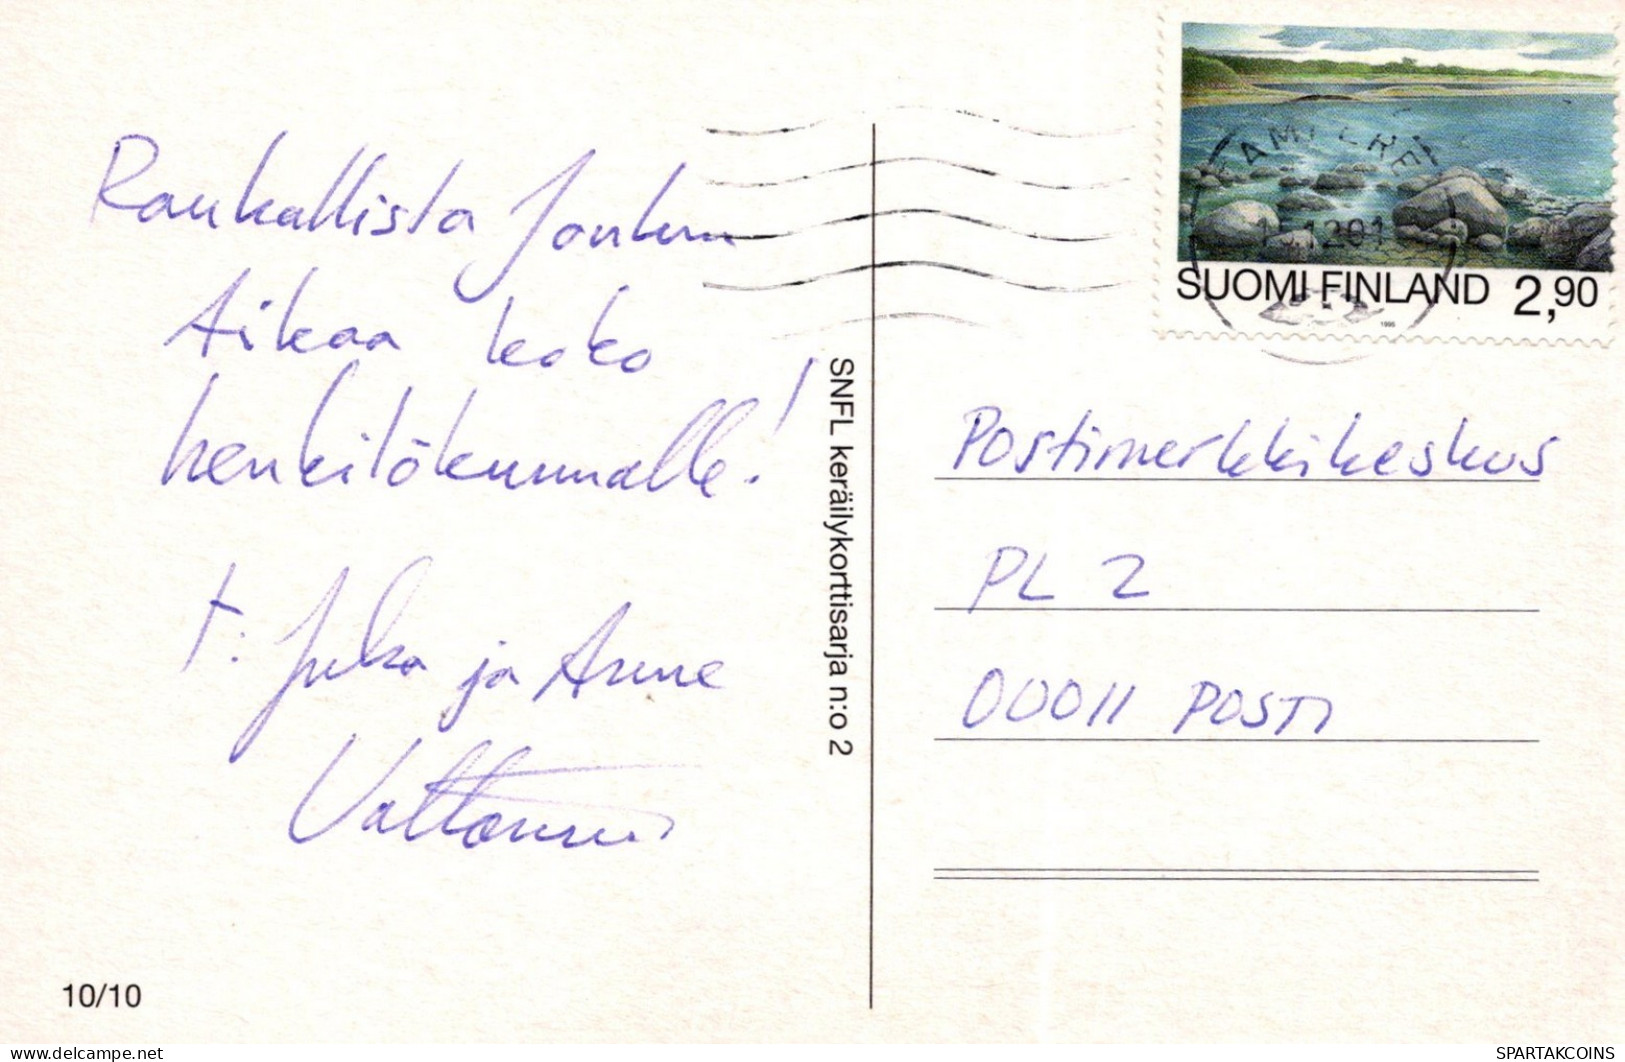 Rauhallista Joulun
Aikaa koko
henkilökunnalle!
t: Juha ja Anne
10/10
SNFL keräilykorttisarja n:o 2
SUOMI FINLAND 2,90
1995
Postimerkkikeskus
PL 2
00011 POSTI
delcampe.net
SPARTAKCOINS